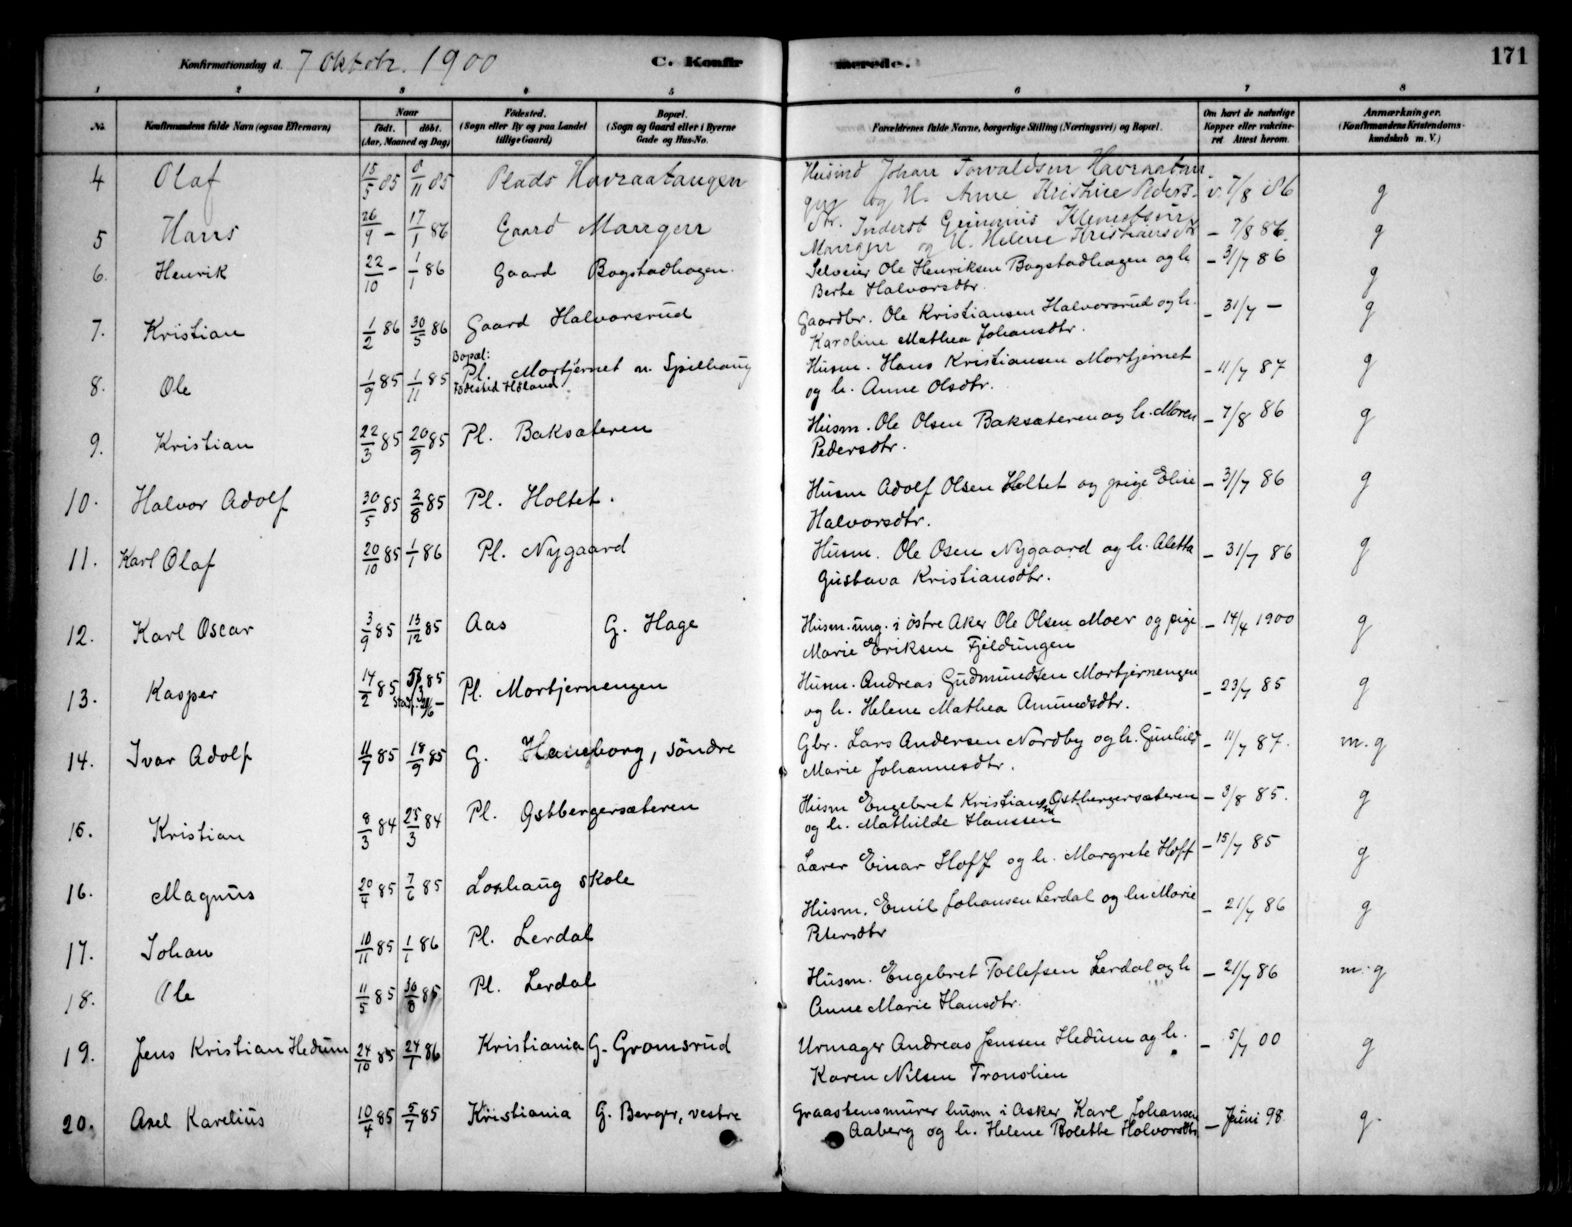 Konfirmationsdag d. 7 Oktobr. 1900 C. Konfirmerede. 171
1 2 3 4 5 6 7 8
No. Konfirmandens fulde Navn (ogsaa Efternavn) Naar født. døbt. (Aar, Maaned og Dag) Fødested. (Sogn eller By og paa Landet tillige Gaard) Bopæl. (Sogn og Gaard eller i Byerne Gade og Hus-No. Forældrenes fulde Navne, borgerlige Stilling (Næringsvei) og Bopæl. Om havt de naturlige Kopper eller vakcineret Attest herom. Anmærkninger. (Konfirmandens Kristendomskundskab m. V.)
4 Olaf 15/5 85 8/11 85 Plads Havraatangen Husmd Johan Torvaldsen Havraatangen og H. Anne Kristine Peders- v. 7/8 86 g
5 Hans 26/9 – 17/1 86 Gaard Mangen
Mangen og H. Helene Kristiansdtr – 7/8 86. g
6. Henrik 22/10 – 1/1 86 Gaard Bogstadhagen. Selveier Ole Henriksen Bogstadhagen og h. – 31/7 86 g
Berte Halvorsdtr.
7. Kristian 1/2 86 30/5 86 Gaard Halvorsrud Gaardbr. Ole Kristiansen Halvorsrud og h. – 31/7 – g
Karoline Mathea Johansdtr.
8. Ole 1/9 85 1/11 85 Bopæl: Pl. Mortjernet u. Spilhaug Husm. Hans Kristiansen Mortjernet – 11/7 87 g
Fødested Høland og h. Anne Olsdtr.
9. Kristian 22/3 85 20/9 85 Pl. Baksæteren Husm. Ole Olsen Baksæteren og h. Maren – 7/8 86 g
Pedersdtr.
10. Halvor Adolf 30/5 85 2/8 85 Pl. Holtet. Husm Adolf Olsen Holtet og pige Elise – 31/7 86 g
Halvorsdtr.
11. Karl Olaf 20/10 85 1/1 86 Pl. Nygaard Husm. Ole Osen Nygaard og h. Aletta – 31/7 86 g
Gustava Kristiansdtr.
12. Karl Oscar 3/9 85 13/12 85 Aas G. Hage Husm. ung. i Østre Aker Ole Olsen Moer og pige – 14/4 1900 g
Marie Eriksen Fjeldungen
13. Kasper 14/2 85 Pl. Mortjernengen Husm. Andreas Gudmundsen Mortjernengen – 23/7 85 g
og h. Helene Mathea Amundsdtr.
14. Ivar Adolf 11/7 85 18/9 85 G. Haneborg, søndre Gbr. Lars Andersen Nordby og h. Gunhild – 11/7 87. m. g
Marie Johannesdtr.
15. Kristian 8/3 84 25/3 84 Pl. Østbergersæteren Husm Engebret Kristiansen Østbergersæteren – 3/8 85. g
og h. Mathilde Hanssen
16. Magnus 20/4 85 7/6 85 Loshaug skole Lærer Einar Hoff og h. Margrete Hoff – 15/7 85 g
17. Johan 10/11 85 1/1 86 Pl. Lerdal Husm. Emil Johansen Lerdal og h. Marie – 21/7 86 g
Petersdtr
18. Ole 11/5 85 30/8 85 Pl. Lerdal Husm. Engebret Tollefsen Lerdal og h – 21/7 86 m. g
Anne Marie Hansdtr.
19. Jens Kristian Hedum 24/10 85 24/1 86 Kristiania G. Gromsrud Urmager Andreas Jenssen Hedum og h. – 5/7 00 g
Karen Nilsen Tronslien
20. Axel Karelius 10/4 85 5/7 85 Kristiania G. Berger, vestre Graastensmurer husm i Asker Karl Johansen – Juni 98. g.
Aaberg og h. Helene Bolette Halvorsdtr.